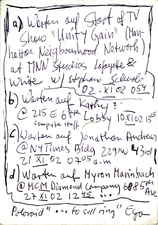 a) Warten auf Start of TV
Show "Unity Gain" (Man-
hattan Neighbourhood Network)
at MNN Studios Lafayette &
White w/ Stephane
02. XI 02 054
b) Warten auf Kathy?
@ 215 E 6th Lobby 10 XI 02 15
compute stuff
c) Warten auf Jonathan Andrews
@ NYTimes Bldg 229 W 43rd
21 XI 02 0705 a.m
d) Warten auf Myron Mannbach
@ HGM Diamond Company 608 5th Ave
27 XI 02 1245
Polaroid "... to call ring"